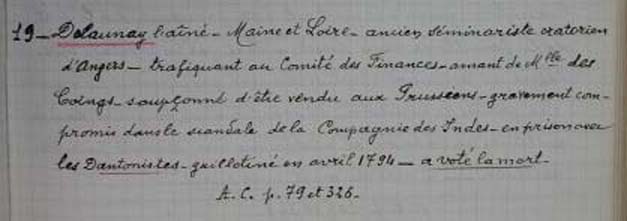 19 - Delaunay l'aîné - Maine et Loire - ancien séminariste oratorien
d'Angers - trafiquant au Comité des Finances - amant de Mlle des
Coings - soupçonné d'être vendu aux Prussiens - gravement com-
promis dans le scandale de la Compagnie des Indes - en prison avec
les Dantonistes - guillotiné en avril 1794 - a voté la mort.
A. C. p. 79 et 326.